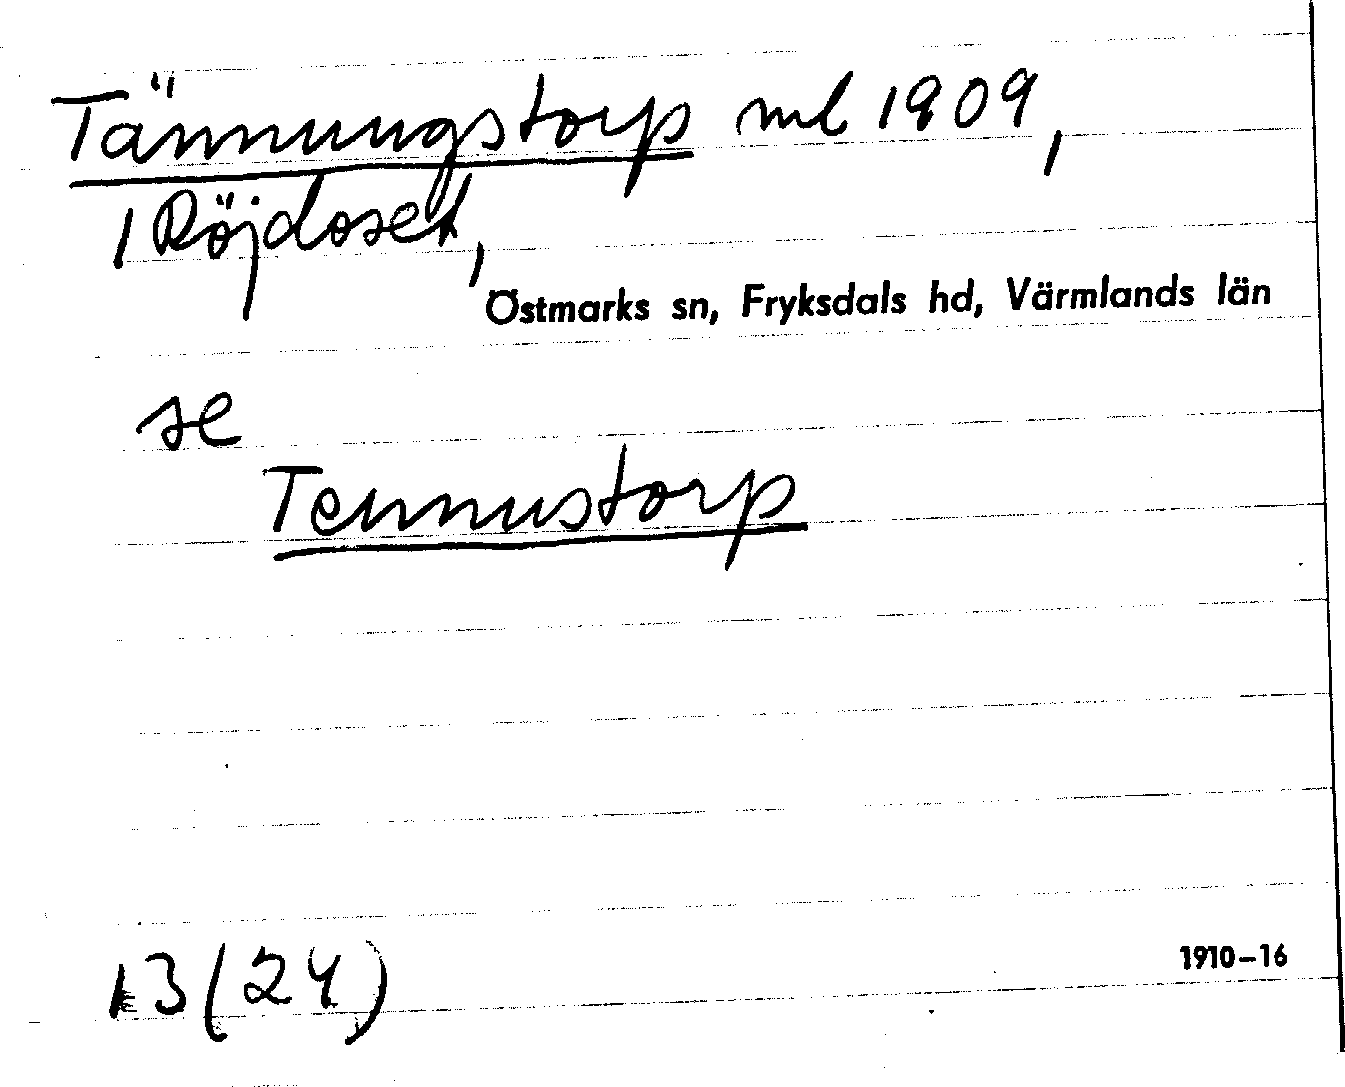 Tännungstorp ml 1909,
1 Röjdoset,
Östmarks sn, Fryksdals hd, Värmlands län
se
Tennustorp
13(24)
1910-16